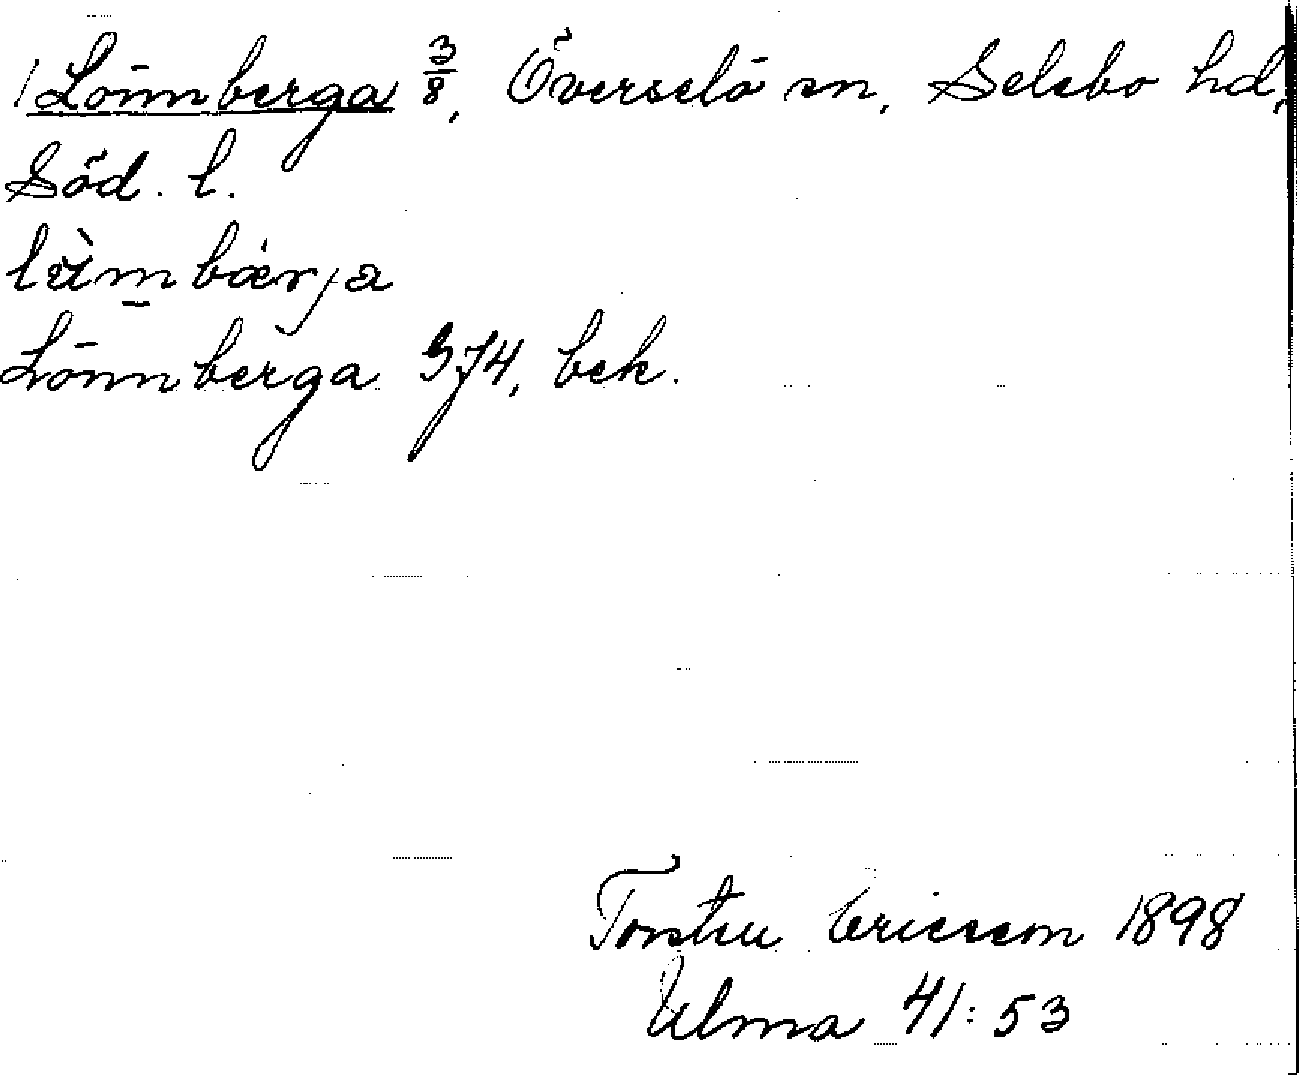 Lönnberga 3/8, Överselö sn, Selebo hd,
Söd. l.
Lönnberga GJ4, bek.
Torsten Ericsson 1898
Ulma 41:53